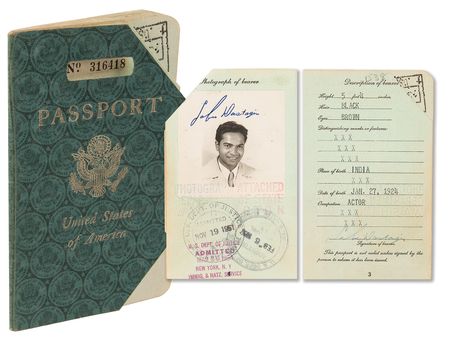 Nº 316418
PASSPORT
United States
of America
Photograph of bearer
Sabu Dastagir
PHOTOGRAPH ATTACHED
DEPT. OF JUSTICE
NOV 19 1951
U. S. DEPT. OF JUSTICE
ADMITTED
NEW YORK, N. Y.
IMMIG. & NATZ. SERVICE
Description of bearer
Height 5 feet 4 inches
Hair BLACK
Eyes BROWN
Distinguishing marks or features:
XXX
XXX
XXX
Place of birth INDIA
Date of birth JAN. 27, 1924
Occupation ACTOR
XXX
XXX
Sabu Dastagir
Signature of bearer.
This passport is not valid unless signed by the
person to whom it has been issued.
3